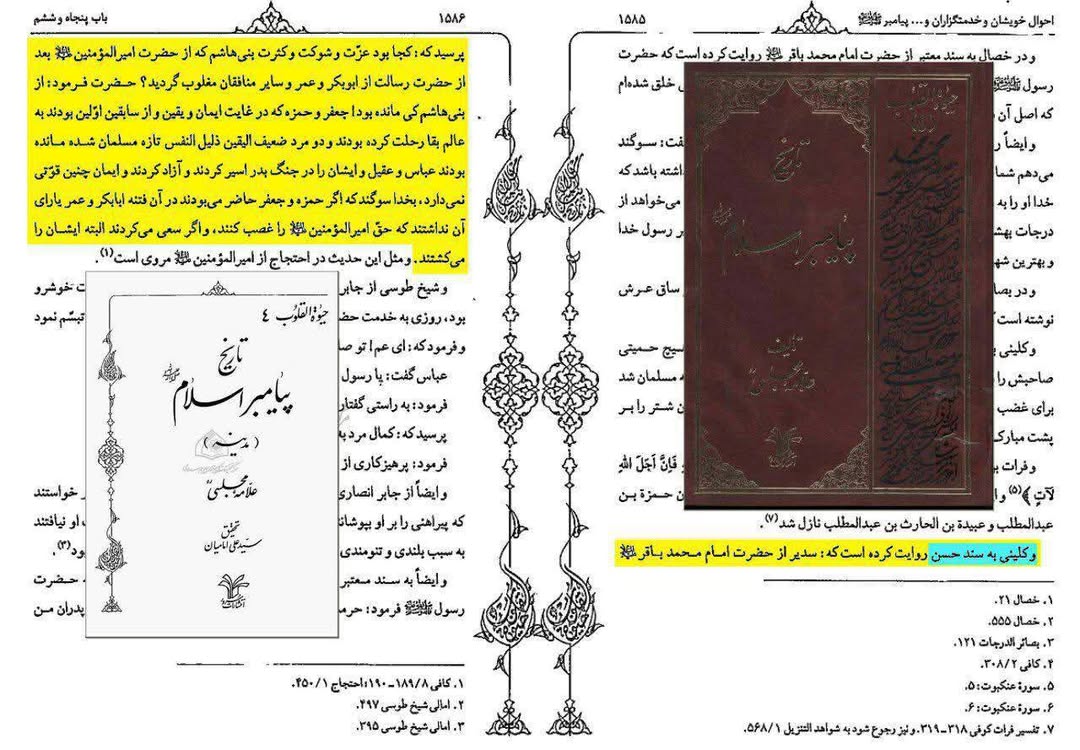 احوال خویشان و خدمتگزاران و... پیامبر ﷺ
۱۵۸۵
و در خصال به سند معتبر از حضرت امام محمد باقر علیه السلام روایت کرده است که حضرت
رسول ﷺ
خلق شده‌ام
که اصل آن
و ایضاً
گفت: سوگند
می‌دهم شما
داشته باشد که
خدا او را به
می‌خواهد از
درجات بهش
بر رسول خدا
و بهترین شه
و در بصا
ساق عرش
نوشته است
و کلینی
هیچ حمیتی
صاحبش را
به مسلمان شد
برای غضب
شتر را بر
پشت مبارک
و فرات
﴿فَإِنَّ أَجَلَ اللهِ
لَآتٍ﴾(۵)
حمزة بن
عبدالمطلب و عبیدة بن الحارث بن عبدالمطلب نازل شد(۷).
و کلینی به سند حسن روایت کرده است که: سدیر از حضرت امام محمد باقر علیه السلام
۱. خصال ۲۱.
۲. خصال ۵۵۵.
۳. بصائر الدرجات ۱۲۱.
۴. کافی ۳۰۸/۲.
۵. سورۀ عنکبوت: ۵.
۶. سورۀ عنکبوت: ۶.
۷. تفسیر فرات کوفی ۳۱۸-۳۱۹. و نیز رجوع شود به شواهد التنزیل ۵۶۸/۱.
حیوة القلوب
تاریخ
پیامبر اسلام
تألیف
علامه مجلسی
باب پنجاه و ششم
۱۵۸۶
پرسید که: کجا بود عزّت و شوکت و کثرت بنی‌هاشم که از حضرت امیرالمؤمنین علیه السلام بعد
از حضرت رسالت از ابوبکر و عمر و سایر منافقان مغلوب گردید؟ حضرت فرمود: از
بنی‌هاشم کی مانده بود! جعفر و حمزه که در غایت ایمان و یقین و از سابقین اوّلین بودند به
عالم بقا رحلت کرده بودند و دو مرد ضعیف الیقین ذلیل النفس تازه مسلمان شده مانده
بودند عباس و عقیل و ایشان را در جنگ بدر اسیر کردند و آزاد کردند و ایمان چنین قوّتی
نمی‌دارد، بخدا سوگند که اگر حمزه و جعفر حاضر می‌بودند در آن فتنه ابابکر و عمر یارای
آن نداشتند که حقّ امیرالمؤمنین علیه السلام را غصب کنند، و اگر سعی می‌کردند البته ایشان را
می‌کشتند. و مثل این حدیث در احتجاج از امیرالمؤمنین علیه السلام مروی است(۱).
و شیخ طوسی از جابر
خوشرو
بود، روزی به خدمت حضر
تبسّم نمود
و فرمود که: ای عم! تو صا
عباس گفت: یا رسول
فرمود: به راستی گفتار
پرسید که: کمال مرد به
فرمود: پرهیزکاری از
و ایضاً از جابر انصاری
خواستند
که پیراهنی را بر او بپوشانند
او نیافتند
به سبب بلندی و تنومندی
بود(۳).
و ایضاً به سند معتبر
حضرت
رسول ﷺ فرمود: حرم
پدران من
۱. کافی ۱۸۹/۸-۱۹۰؛ احتجاج ۴۵۰/۱.
۲. امالی شیخ طوسی ۴۹۷.
۳. امالی شیخ طوسی ۳۹۵.
حیوة القلوب ٤
تاریخ
پیامبر اسلام
(مدینه)
علامه مجلسی
تحقیق
سید علی امامیان